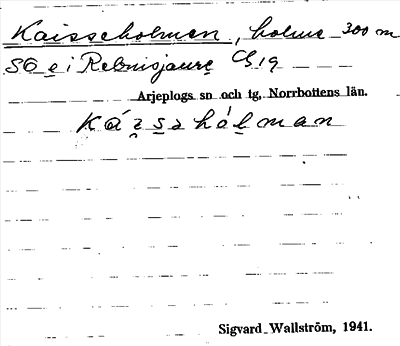 Kaisseholmen, holme 300 m
SO e i Rebnisjaure
Arjeplogs sn och tg, Norrbottens län.
Sigvard Wallström, 1941.